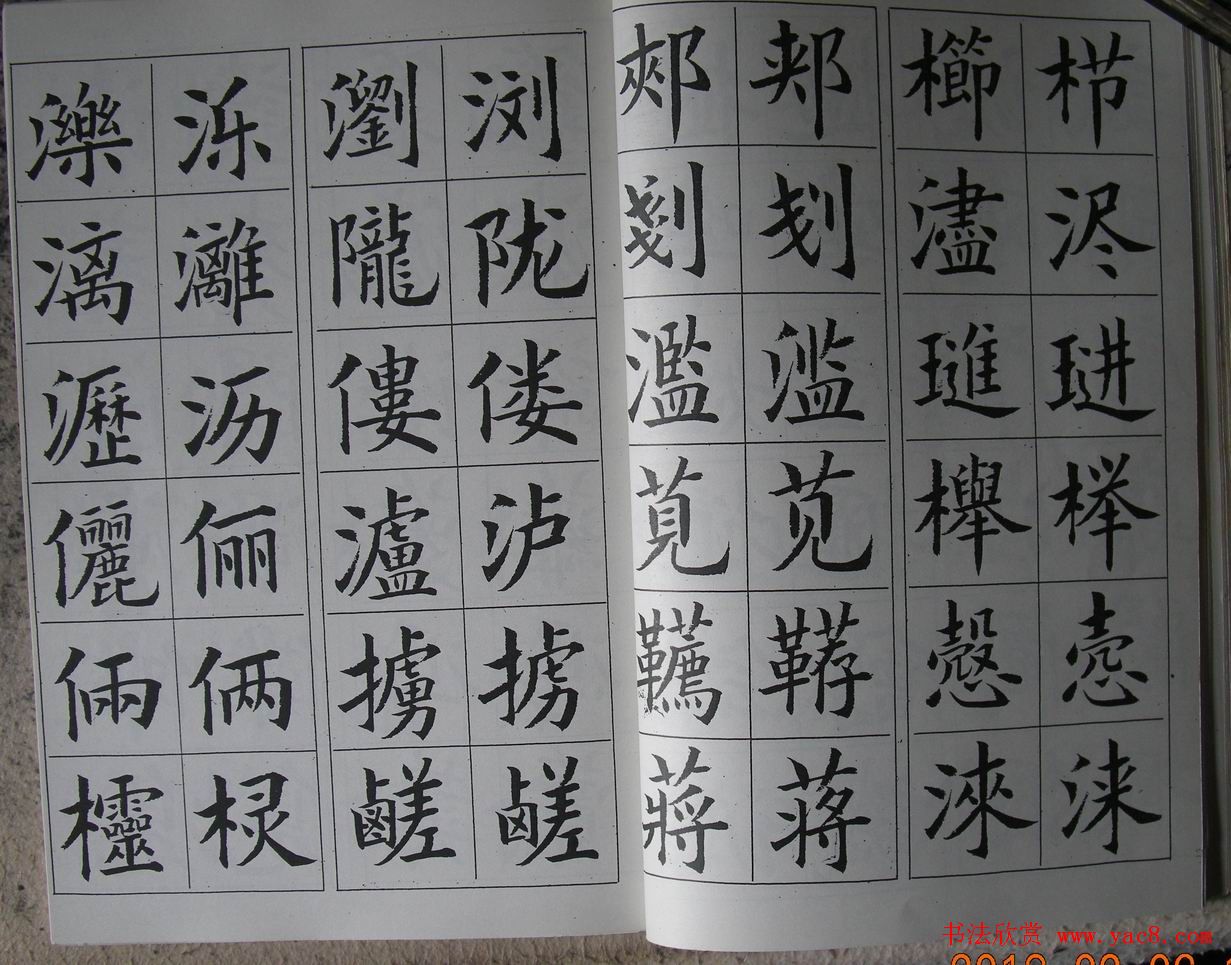 濼 泺 瀏 浏 郟 郏 櫛 栉
漓 灕 隴 陇 剗 刬 濜 浕
瀝 沥 僂 偻 濫 滥 璡 琎
儷 俪 瀘 泸 莧 苋 櫸 榉
倆 俩 擄 掳 韉 鞯 慤 悫
欞 棂 鹺 鹾 蔣 蒋 淶 涞
书法欣赏 www.yac8.com